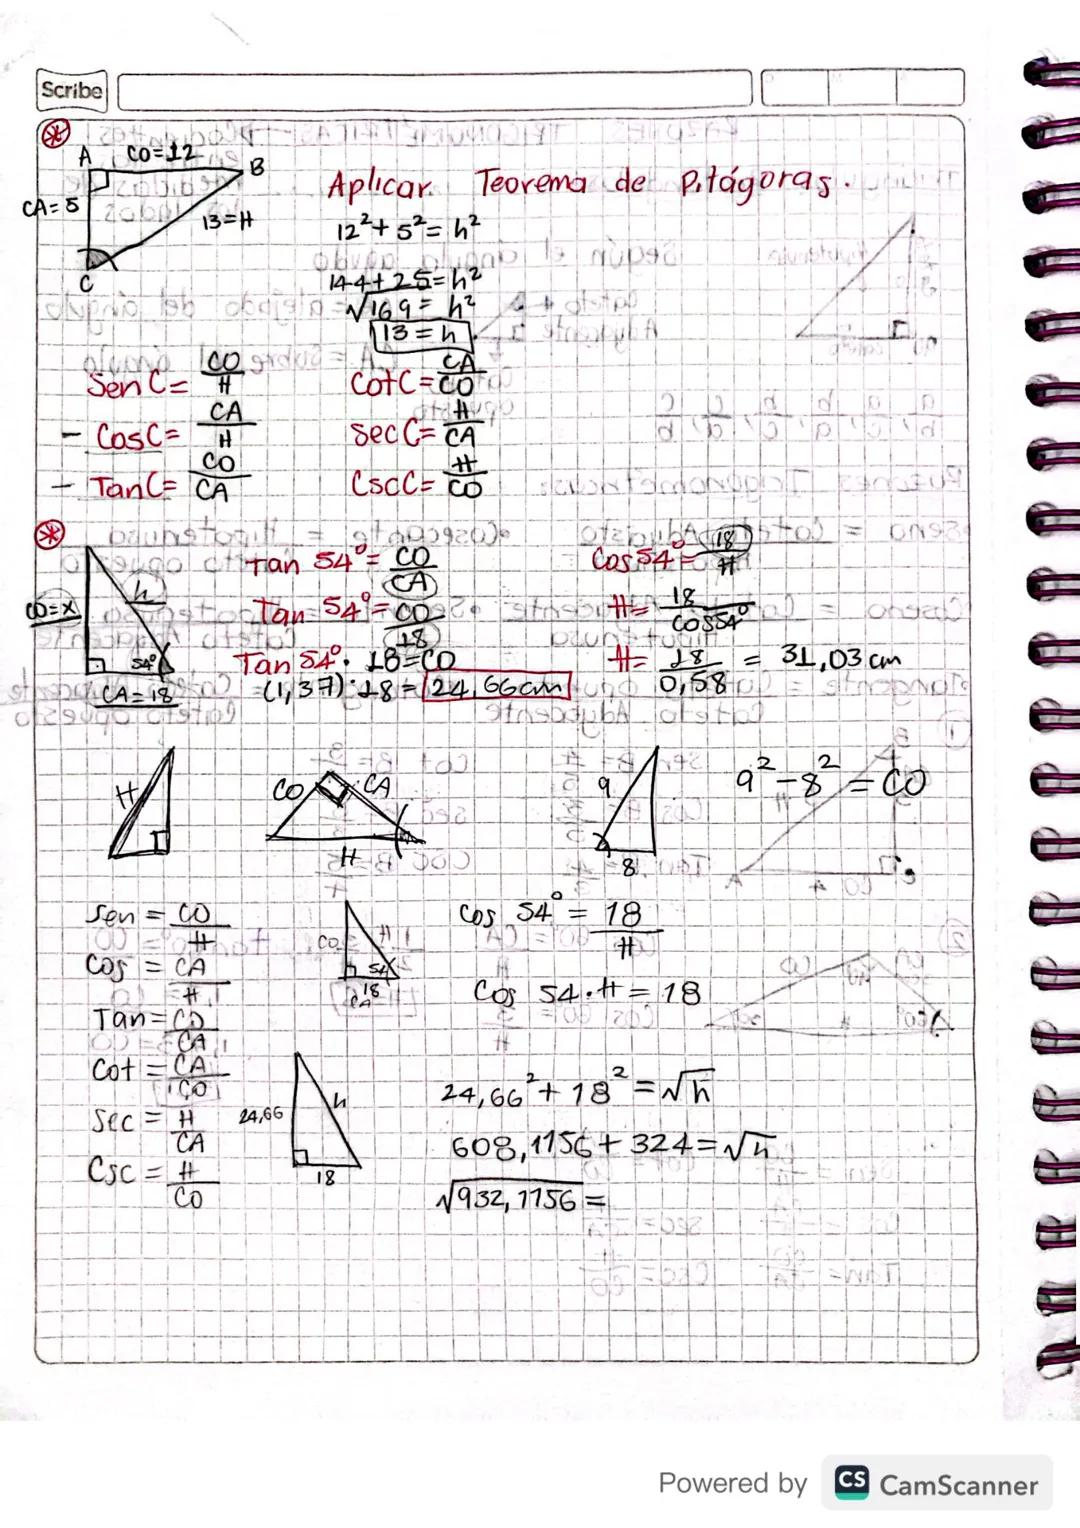 Scribe
A
CO=12
B
CA=5
13=H
C
Aplicar Teorema de Pitágoras.
12²+5²=h²
144+25=h²
√169=h²
13=h
Sen C= CO/H
CotC= CA/CO
- CosC= CA/H
SecC= H/CA
- TanC= CO/CA
CscC= H/CO
CO=x
h
54°
CA=18
Tan 54°= CO/CA
Tan 54°= CO/18
Tan 54°. 18=CO
=(1,37).18= 24,66cm
Cos 54°= 18/H
H= 18/COS54°
H= 18/0,58 = 31,03 cm
H
CO
CA
H
9
8
9²-8²=CO
Sen = CO/H
Cos = CA/H
Tan= CO/CA
Cot = CA/CO
Sec = H/CA
Csc = H/CO
CO
H
54
18
CA
Cos 54° = 18/H
Cos 54.H = 18
24,66
h
18
24,66²+18²=√h
608,1156+324=√h
√932,1156=
Powered by CS CamScanner